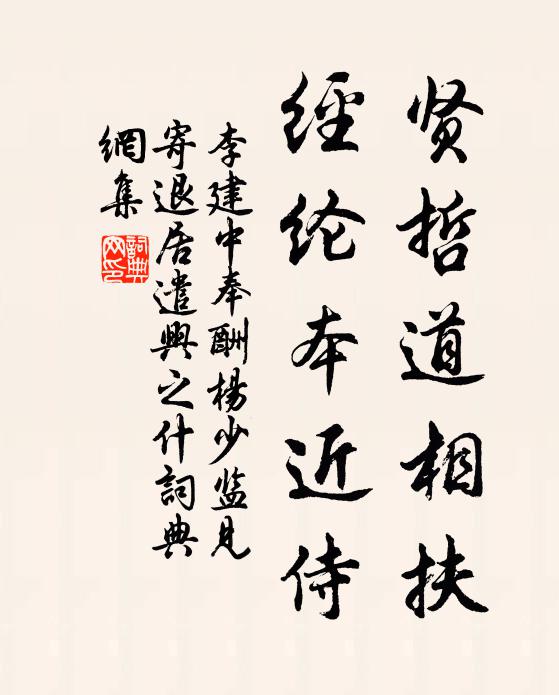 贤哲道相扶
經纶本近侍
李建中奉酬楊少监見
寄退居遣興之什詞典
網集
詞典網印